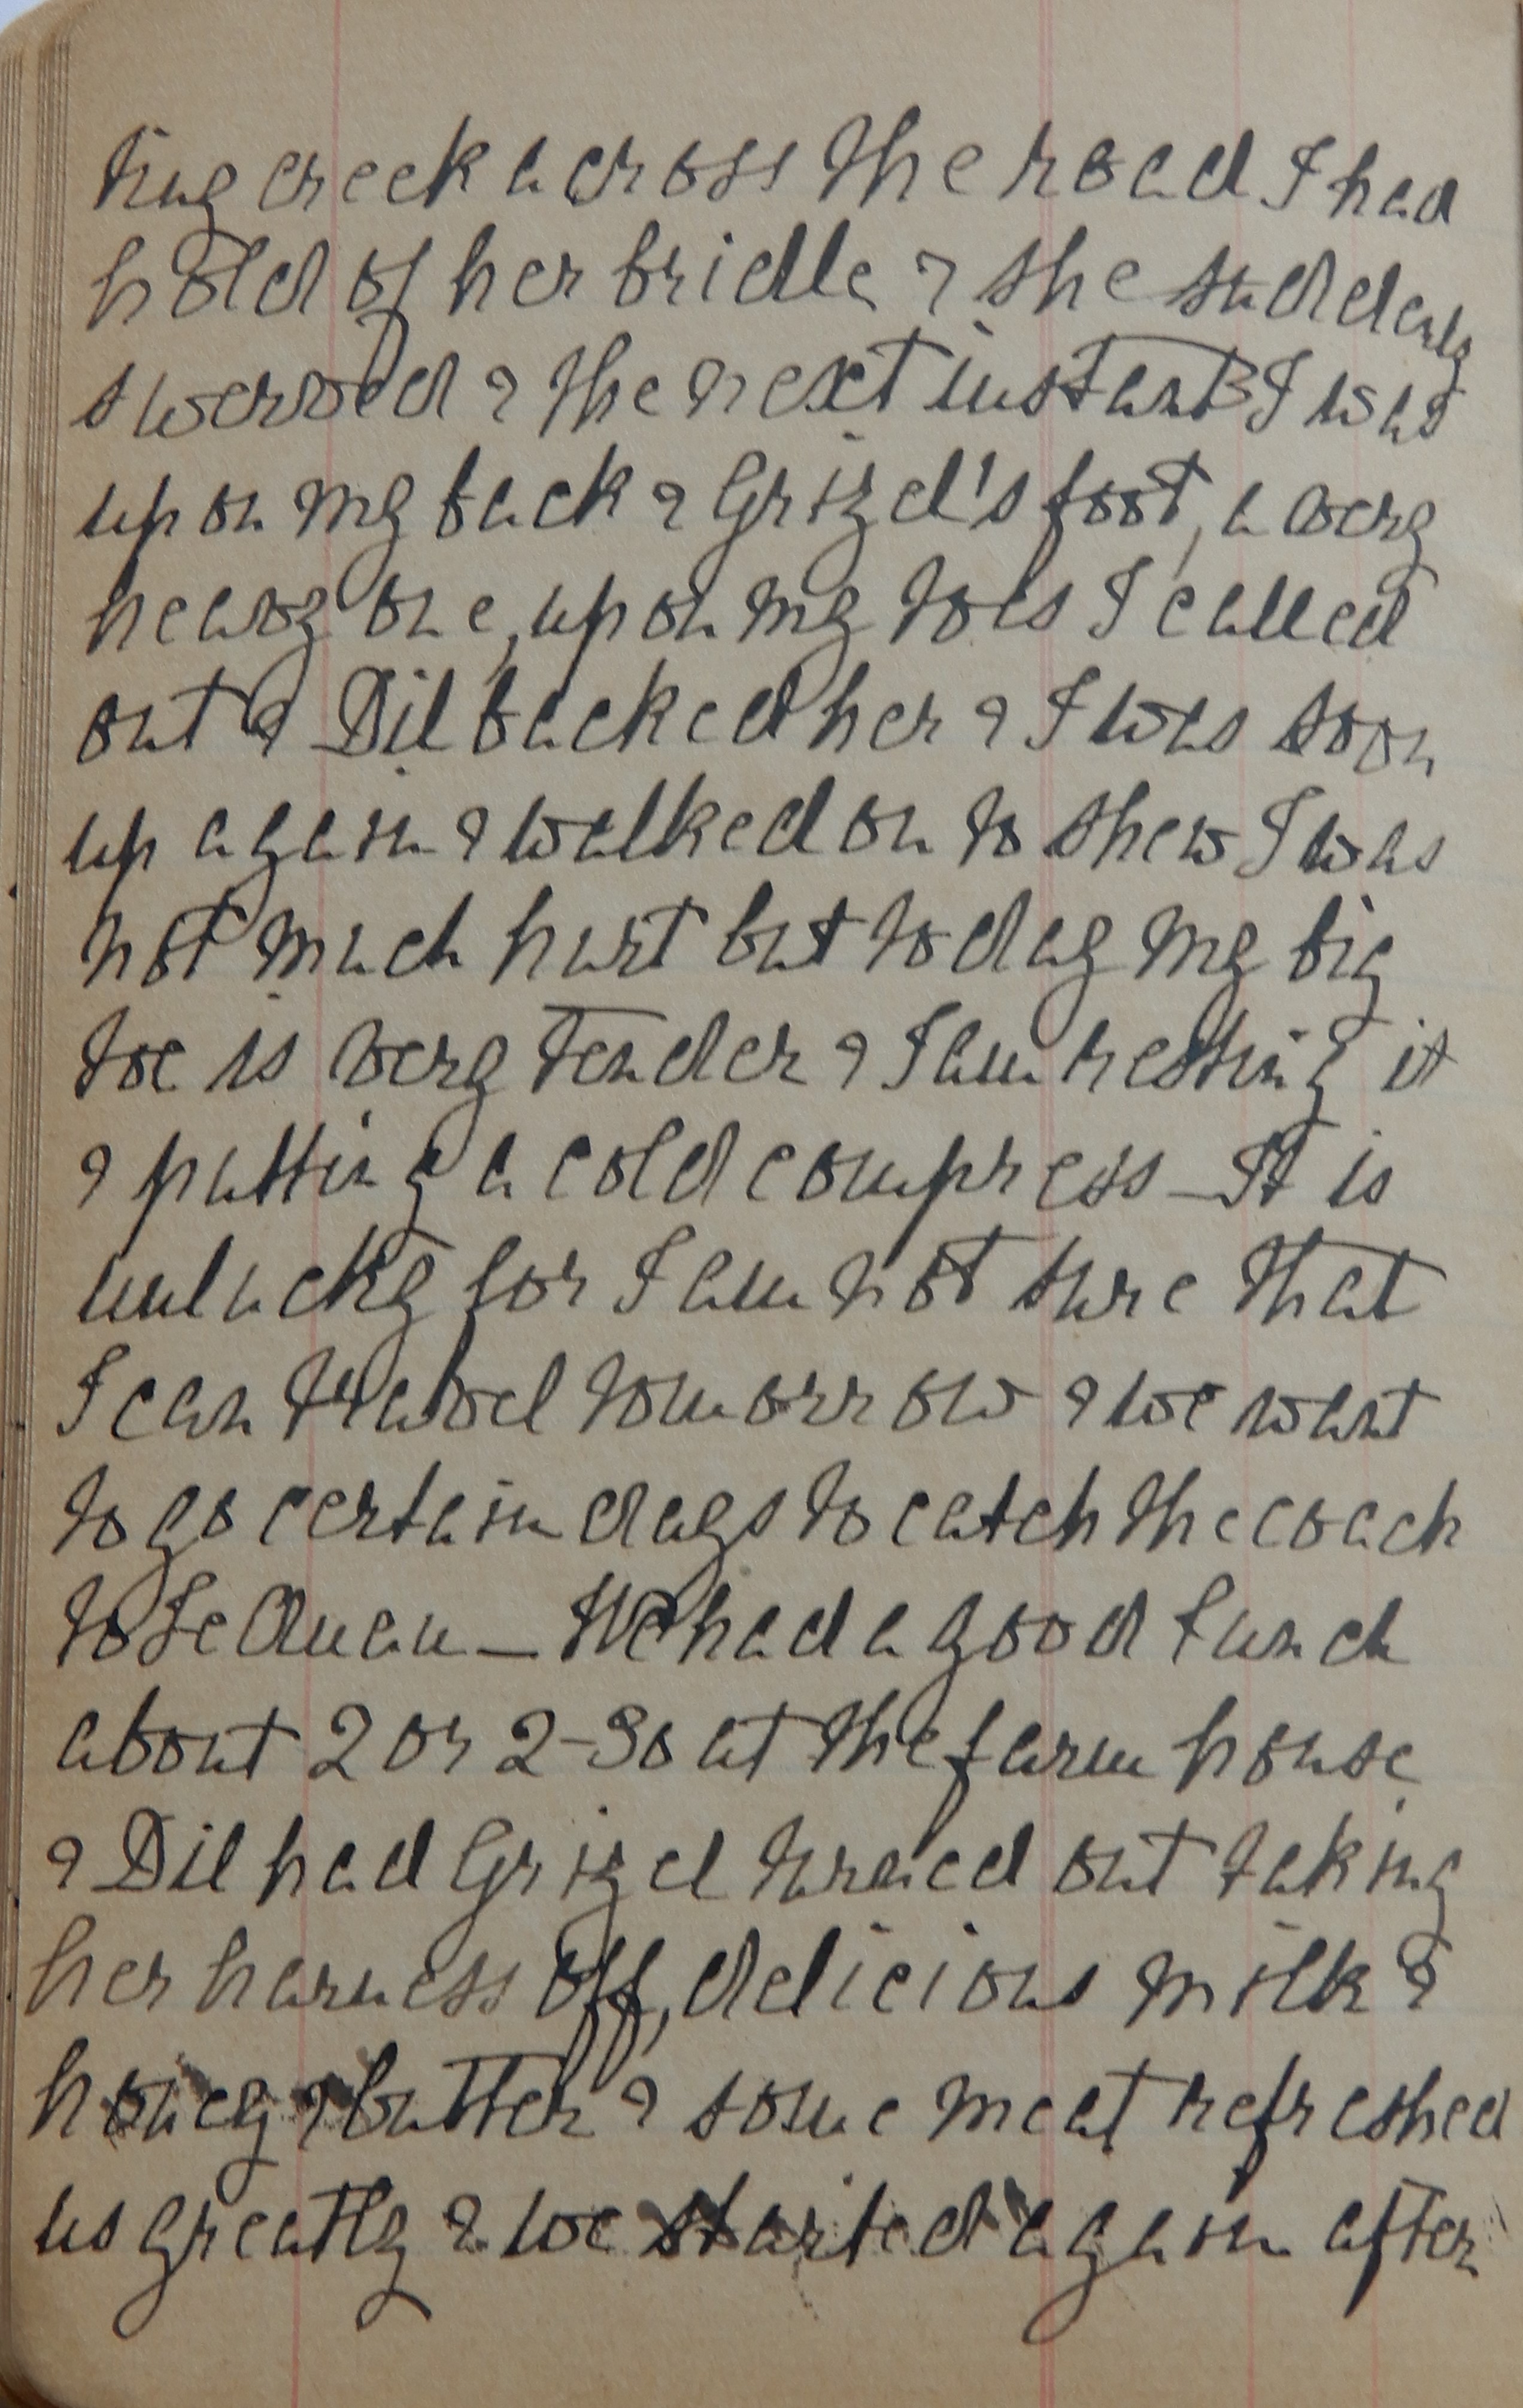 ting creek across the road I had
hold of her bridle & she suddenly
swerved & the next instant I was
upon my back & Grizel's foot, a very
heavy one, upon my toes I called
out & Dil backed her & I was soon
up again & walked on to shew I was
not much hurt but today my big
toe is very tender & I am resting it
& putting a cold compress – It is
unlucky for I am not sure that
I can travel tomorrow & we want
to go certain days to catch the coach
to Te Anau – We had a good lunch
about 2 or 2-30 at the farm house
& Dil had Grizel turned out taking
her harness off, delicious milk &
honey & butter & some meat refreshed
us greatly & we started again after